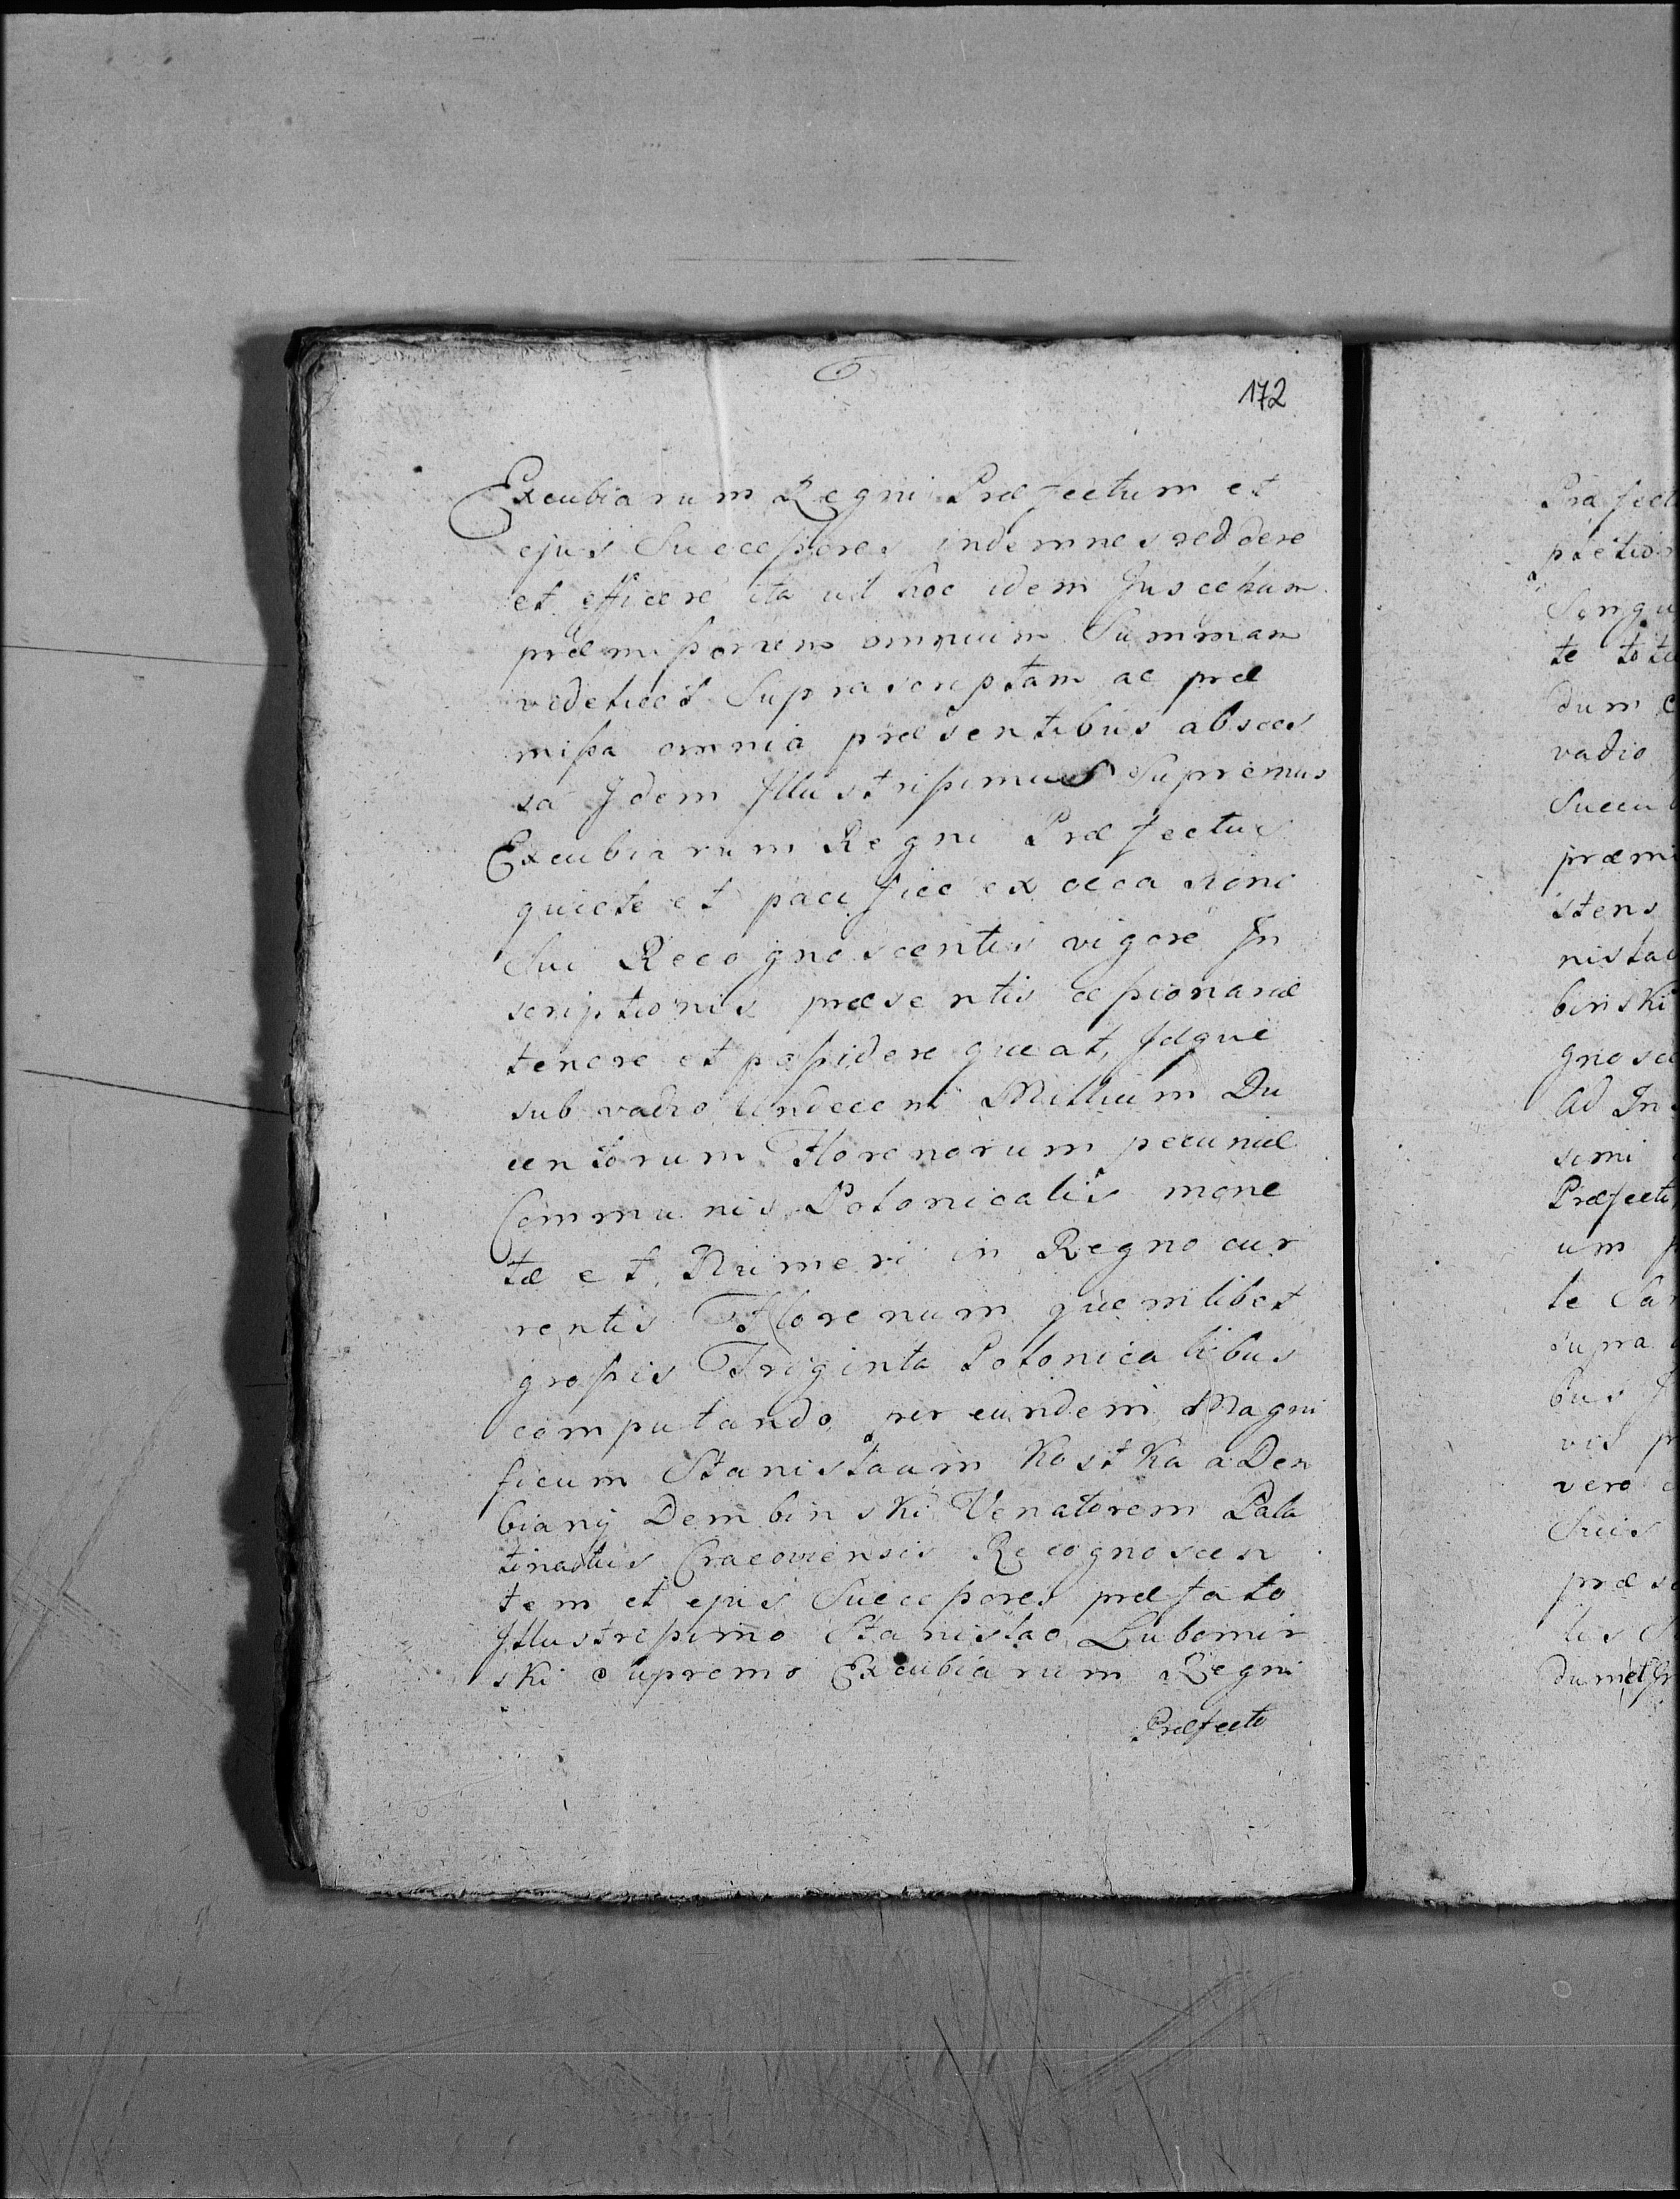 172
Excubiarum Regni Præfectum et
ejus Successores indemnes reddere
et efficere ita ut hoc idem Jus certum
præmissorum omnium Summam
videlicet Suprascriptam ac præ
missa omnia præsentibus abscen
sa Idem Illustrissimus Supremus
Excubiarum Regni Præfectus
quiete et pacifice ex occa sione
Sui Recognoscentis vigore In
scriptionis præsentis cessionariæ
tenere et possidere queat, Idque
sub vadio Undecem Millium Du
centorum Florenorum pecuniæ
Communis Polonicalis mone
tæ et Numeri in Regno cur
rentis Florenum quemlibet
grossis Triginta Polonicalibus
computando, per eundem Magni
ficum Stanislaum Kostka a Dem
biany Dembinski Venatorem Pala
tinatus Cracoviensis Recognoscen
tem et ejus Successores præfato
Illustrissimo Stanislao Lubomir
ski Supremo Excubiarum Regni
Præfecto
Præfect
pretio
Singu
te toti
dum
vadio
Succu
præmi
stens
nislau
binski
gnosc
Ad In
simi
Præfecti
um
le Sa
supra
bus
vis
vero
Suis
præse
les